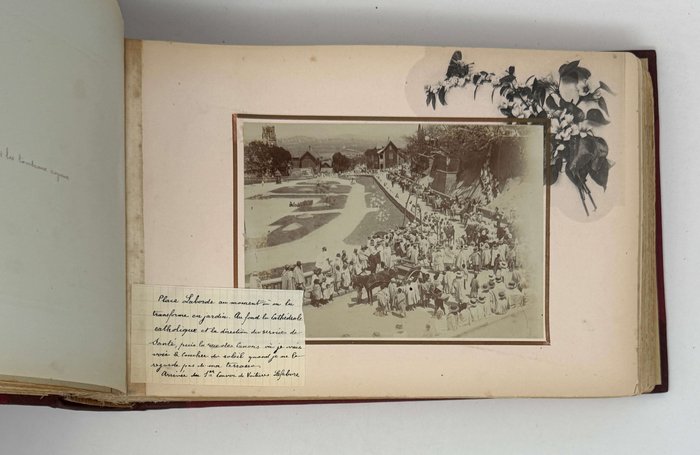 Place Laborde au moment où on la
transforme en jardin. Au fond la Cathédrale
catholique et la direction du service de
Santé, puis la rue des canons où je vais
voir le coucher du soleil quand je ne le
regarde pas de ma terrasse.
Arrivée du 1er convoi de Voitures Lefebvre